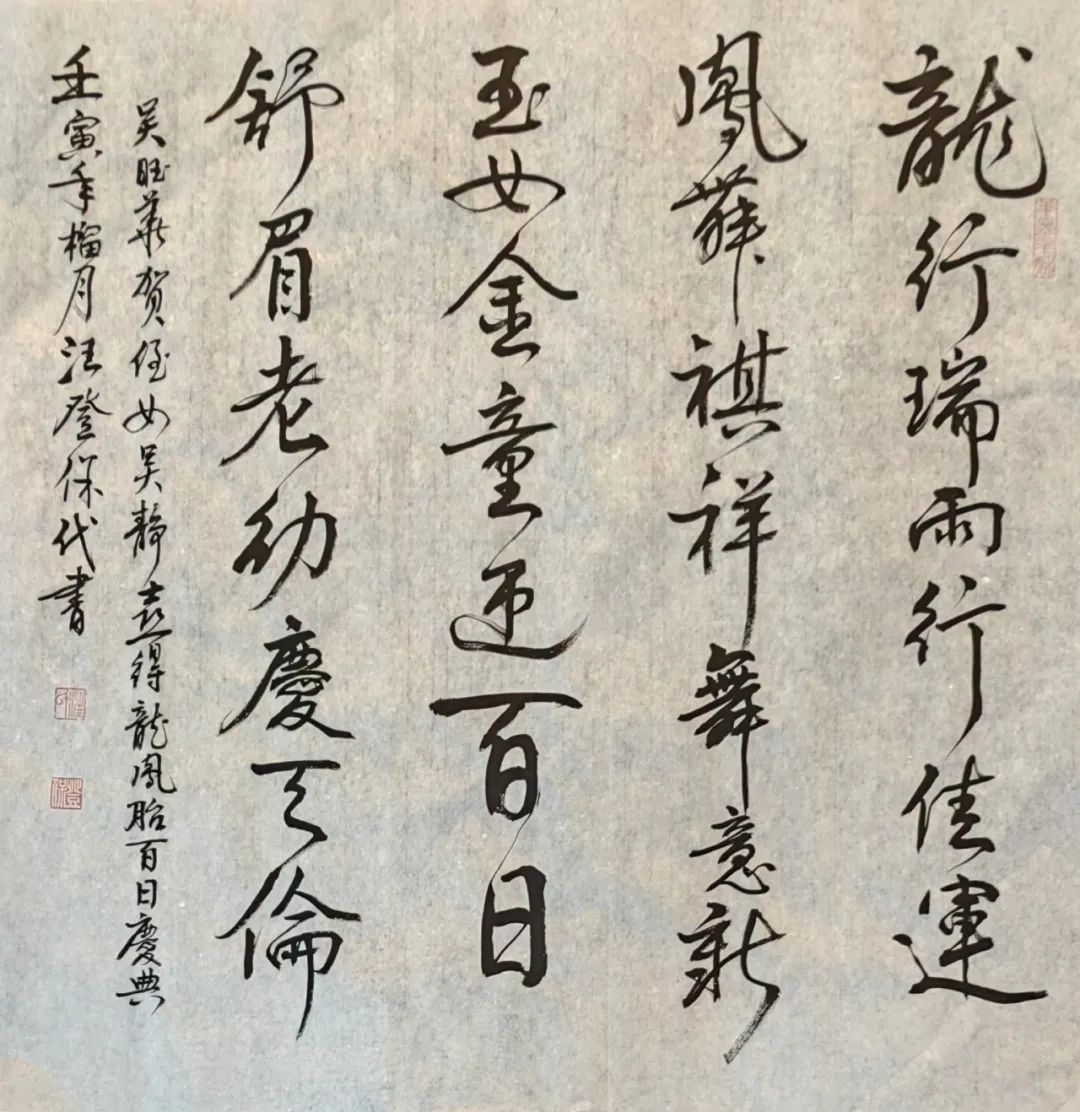 龍行瑞雨行佳運
鳳舞祺祥舞意新
玉女金童迎百日
舒眉老幼慶天倫
吴旺華贺侄女吴靜喜得龍鳳胎百日慶典
壬寅年榴月汪登保代書